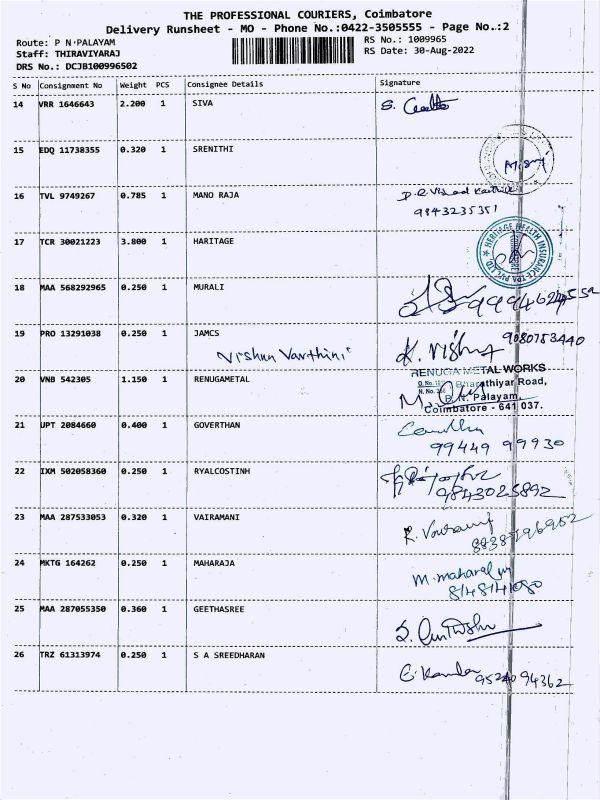 THE PROFESSIONAL COURIERS, Coimbatore
Delivery Runsheet - MO - Phone No.:0422-3505555 - Page No.:2
Route: P N PALAYAM
RS No.: 1009965
Staff: THIRAVIYARAJ
RS Date: 30-Aug-2022
DRS No.: DCJB100996502
S No Consignment No Weight PCS Consignee Details Signature
14 VRR 1646643 2.200 1 SIVA
15 EDQ 11738355 0.320 1 SRENITHI
16 TVL 9749267 0.785 1 MANO RAJA
9843235351
17 TCR 30021223 3.800 1 HARITAGE
HERITAGE HEALTH INSURANCE TPA PVT. LTD.
18 MAA 568292965 0.250 1 MURALI
19 PRO 13291038 0.250 1 JAMCS
9080753440
Vishnu Varthini K. Vishnu
RENUGA METAL WORKS
20 VNB 542305 1.150 1 RENUGAMETAL
Bharathiyar Road,
P. N. Palayam,
Coimbatore - 641 037.
21 UPT 2084660 0.400 1 GOVERTHAN
99449 99930
22 IXM 502058360 0.250 1 RYALCOSTINH
9843025892
23 MAA 287533053 0.320 1 VAIRAMANI
24 MKTG 164262 0.250 1 MAHARAJA
25 MAA 287055350 0.360 1 GEETHASREE
26 TRZ 61313974 0.250 1 S A SREEDHARAN
9524094362